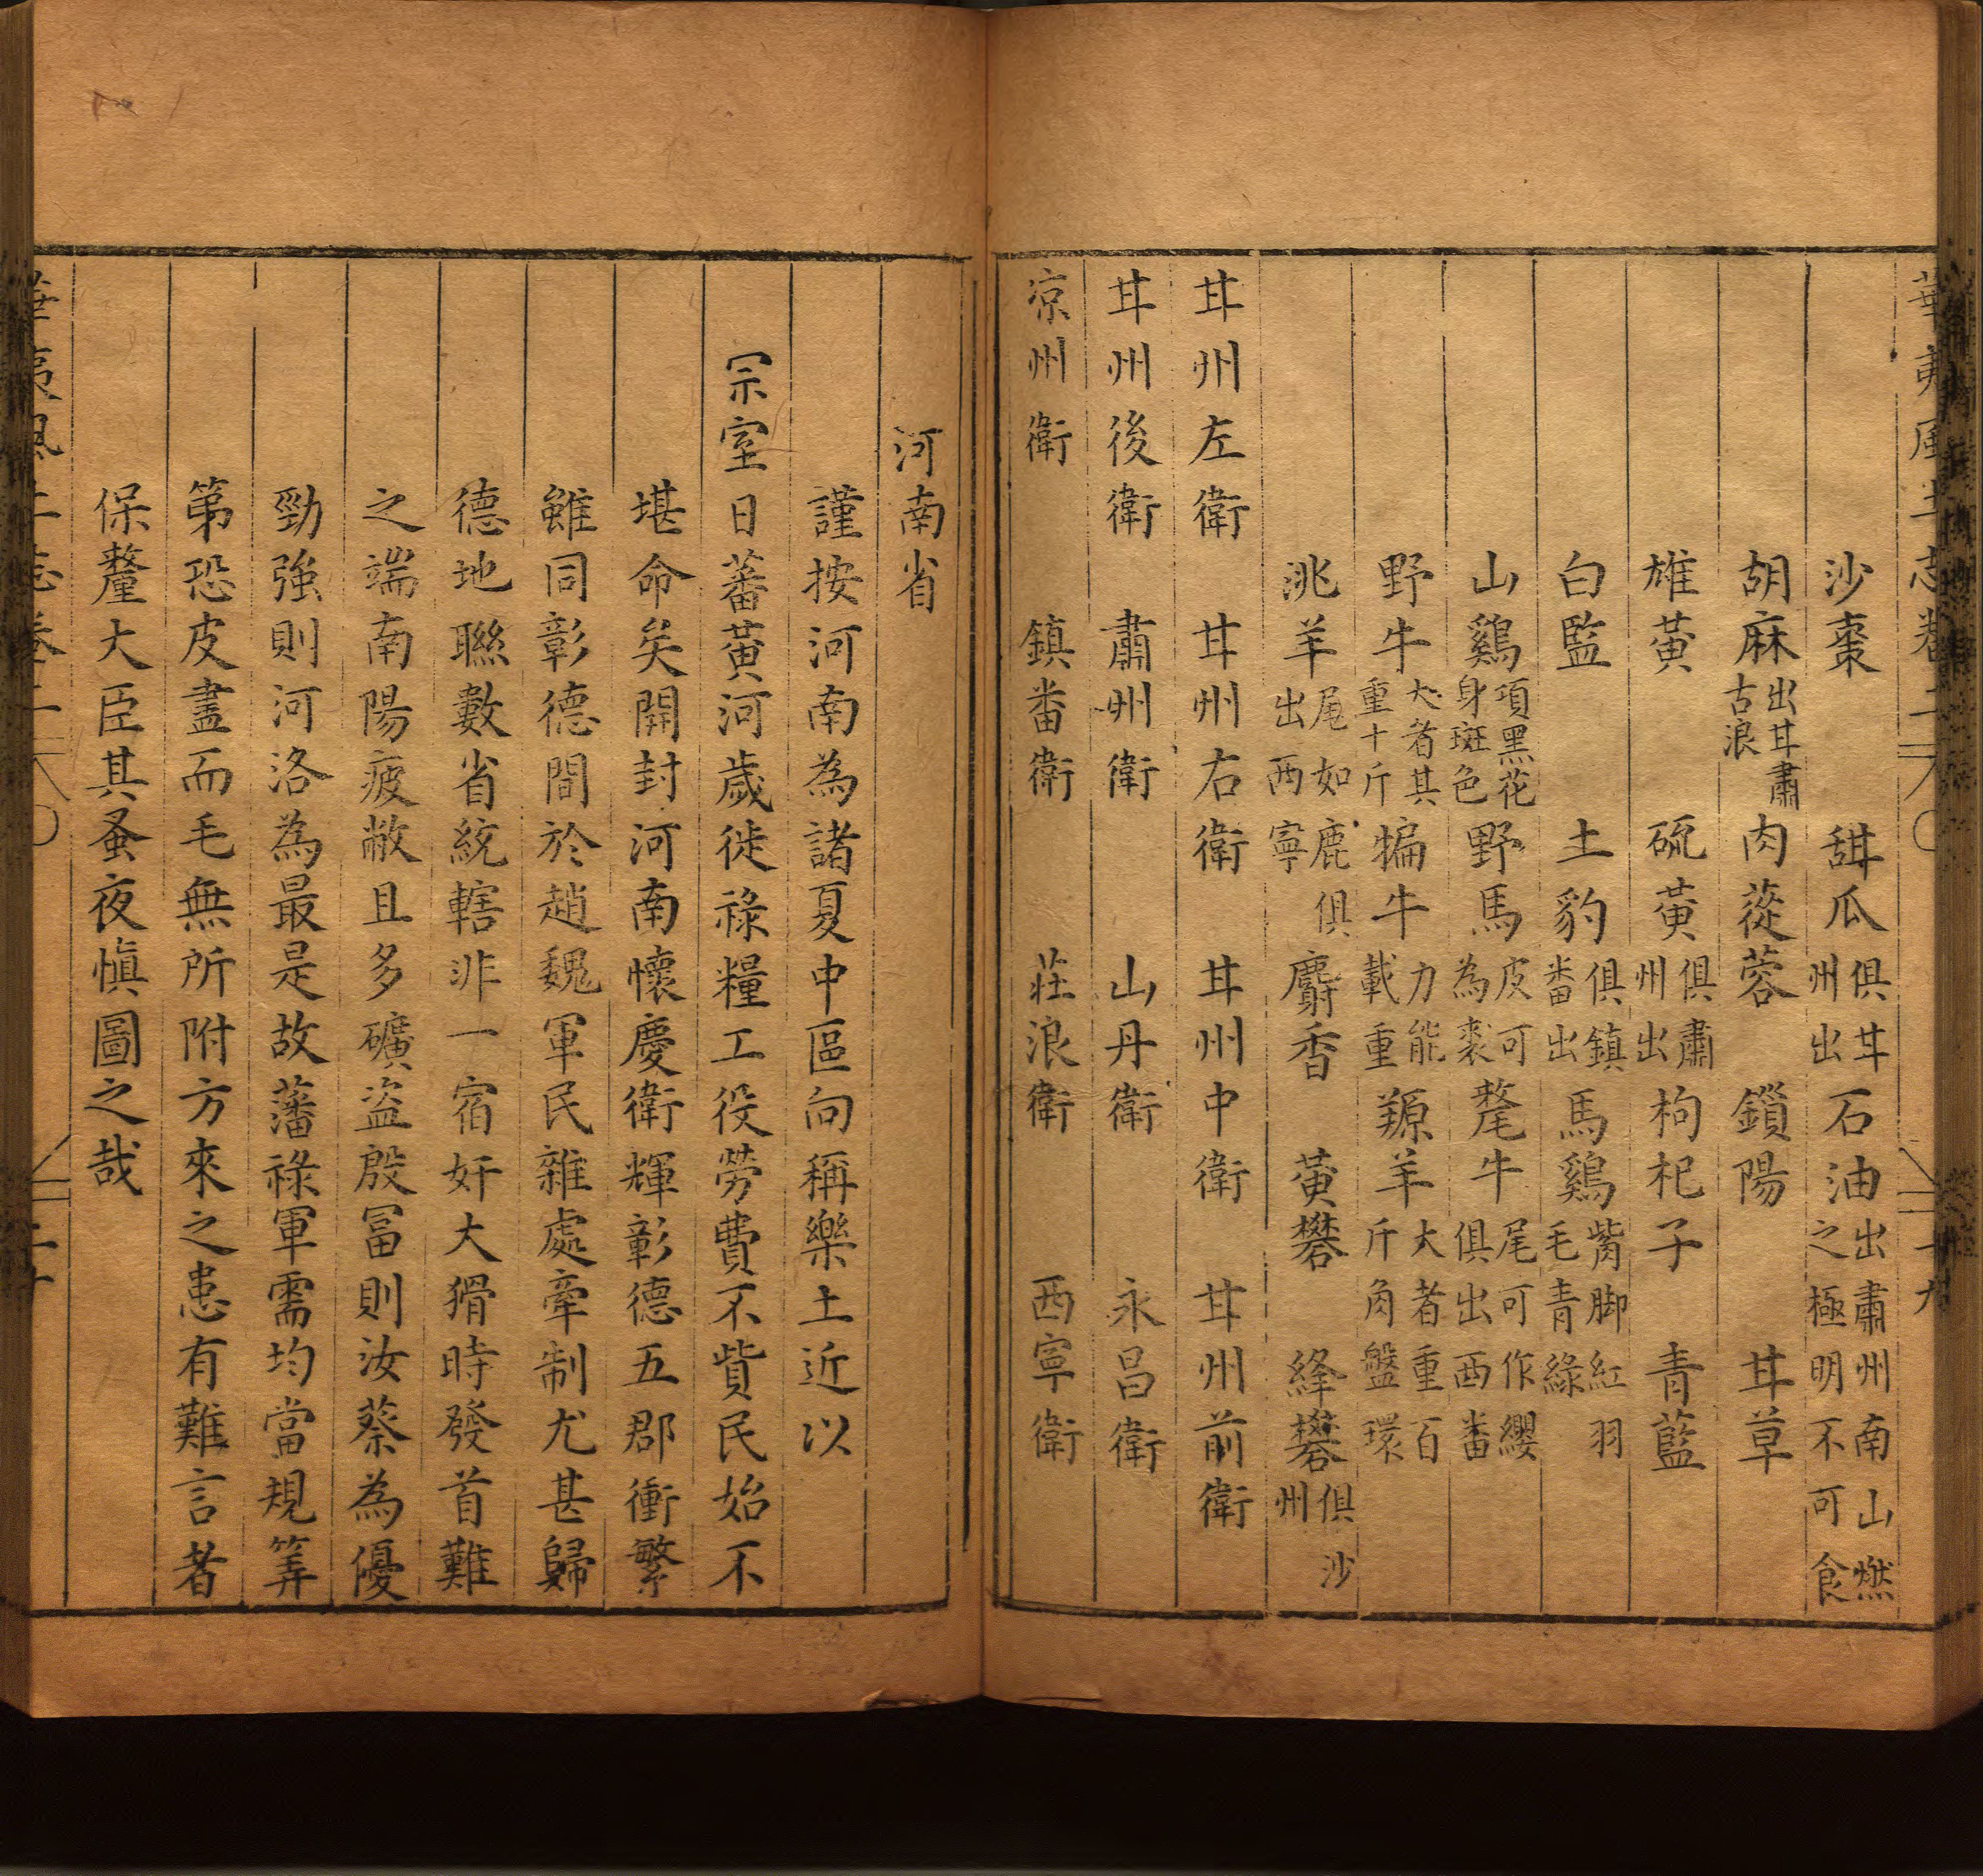 華夷風土志卷二 十九
沙棗 甜瓜 俱甘州出 石油 出肅州南山燃之極明不可食
胡麻 出甘肅古浪 肉蓯蓉 鎖陽 甘草
雄黃 硫黃 俱肅州出 枸杞子 青藍
白監 土豹 俱鎮番出 馬鷄 觜脚紅羽毛青綠
山鷄 項黑花身斑色 野馬 皮可為裘 氂牛 尾可作纓俱出西番
野牛 大者其重十斤 犏牛 力能載重 羱羊 大者重百斤角盤環
洮羊 尾如鹿俱出西寧 麝香 黃礬 絳礬 俱沙州
甘州左衛 甘州右衛 甘州中衛 甘州前衛
甘州後衛 肅州衛 山丹衛 永昌衛
凉州衛 鎮番衛 莊浪衛 西寧衛
河南省
謹按河南為諸夏中區向稱樂土近以
宗室日蕃黃河歲徙祿糧工役勞費不貲民始不
堪命矣開封河南懷慶衛輝彰德五郡衝繁
雖同彰德間於趙魏軍民雜處牽制尤甚歸
德地聯數省統轄非一宿奸大猾時發首難
之端南陽疲敝且多礦盜殷富則汝蔡為優
勁強則河洛為最是故藩祿軍需均當規筭
第恐皮盡而毛無所附方來之患有難言者
保釐大臣其蚤夜慎圖之哉
華夷風土志卷二 二十